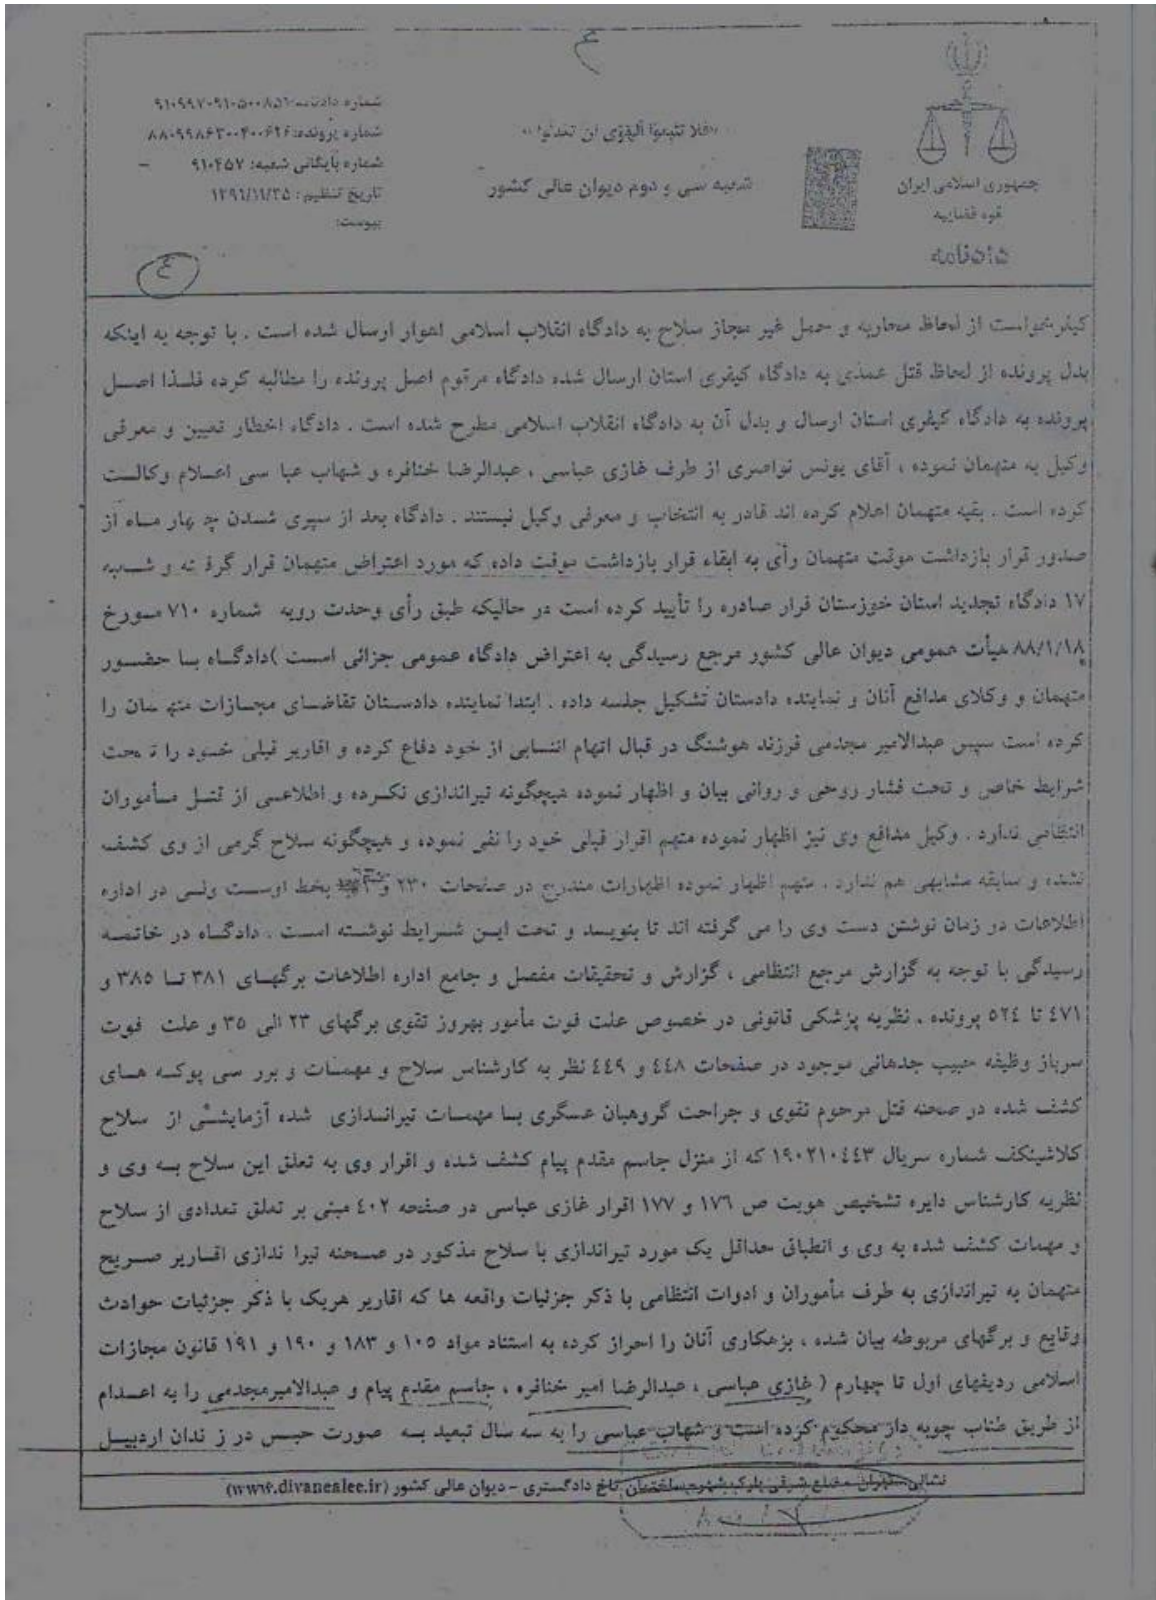 ٤
شماره دادنامه: ۹۱۰۹۹۷۰۹۱۰۵۰۰۸۵۱
شماره پرونده: ۸۸۰۹۹۸۶۳۰۰۴۰۰۶۲۶
شماره بایگانی شعبه: ۹۱۰۴۵۷
تاریخ تنظیم: ۱۳۹۱/۱۱/۲۵
پیوست:
«فلا تتبعوا الهوی ان تعدلوا»
شعبه سی و دوم دیوان عالی کشور
جمهوری اسلامی ایران
قوه قضاییه
دادنامه
٤
کیفرخواست از لحاظ محاربه و حمل غیر مجاز سلاح به دادگاه انقلاب اسلامی اهواز ارسال شده است . با توجه به اینکه
بدل پرونده از لحاظ قتل عمدی به دادگاه کیفری استان ارسال شده دادگاه مرقوم اصل پرونده را مطالبه کرده فلذا اصل
پرونده به دادگاه کیفری استان ارسال و بدل آن به دادگاه انقلاب اسلامی مطرح شده است . دادگاه اخطار تعیین و معرفی
وکیل به متهمان نموده ، آقای یونس نواصری از طرف غازی عباسی ، عبدالرضا خنافره و شهاب عبا سی اعلام وکالت
کرده است . بقیه متهمان اعلام کرده اند قادر به انتخاب و معرفی وکیل نیستند . دادگاه بعد از سپری شدن چهار ماه از
صدور قرار بازداشت موقت متهمان رأی به ابقاء قرار بازداشت موقت داده که مورد اعتراض متهمان قرار گرفته و شعبه
۱۷ دادگاه تجدید استان خوزستان قرار صادره را تأیید کرده است در حالیکه طبق رأی وحدت رویه شماره ۷۱۰ مورخ
۸۸/۱/۱۸ هیأت عمومی دیوان عالی کشور مرجع رسیدگی به اعتراض دادگاه عمومی جزائی است )دادگاه با حضور
متهمان و وکلای مدافع آنان و نماینده دادستان تشکیل جلسه داده . ابتدا نماینده دادستان تقاضای مجازات متهمان را
کرده است سپس عبدالامیر مجدمی فرزند هوشنگ در قبال اتهام انتسابی از خود دفاع کرده و اقاریر قبلی خود را تحت
شرایط خاص و تحت فشار روحی و روانی بیان و اظهار نموده هیچگونه تیراندازی نکرده و اطلاعی از قتل مأموران
انتظامی ندارد . وکیل مدافع وی نیز اظهار نموده متهم اقرار قبلی خود را نفی نموده و هیچگونه سلاح گرمی از وی کشف
نشده و سابقه مشابهی هم ندارد . متهم اظهار نموده اظهارات مندرج در صفحات ۲۳۰ و بخط اوست ولی در اداره
اطلاعات در زمان نوشتن دست وی را می گرفته اند تا بنویسد و تحت این شرایط نوشته است . دادگاه در خاتمه
رسیدگی با توجه به گزارش مرجع انتظامی ، گزارش و تحقیقات مفصل و جامع اداره اطلاعات برگهای ۳۸۱ تا ۳۸۵ و
٤۷۱ تا ۵۲٤ پرونده . نظریه پزشکی قانونی در خصوص علت فوت مأمور بهروز تقوی برگهای ۲۳ الی ۳۵ و علت فوت
سرباز وظیفه حبیب جدهانی موجود در صفحات ٤٤۸ و ٤٤۹ نظر به کارشناس سلاح و مهمات و برر سی پوکه های
کشف شده در صحنه قتل مرحوم تقوی و جراحت گروهبان عسگری با مهمات تیراندازی شده آزمایشی از سلاح
کلاشینکف شماره سریال ۱۹۰۲۱۰٤٤۳ که از منزل جاسم مقدم پیام کشف شده و اقرار وی به تعلق این سلاح به وی و
نظریه کارشناس دایره تشخیص هویت ص ۱۷٦ و ۱۷۷ اقرار غازی عباسی در صفحه ٤۰۲ مبنی بر تعلق تعدادی از سلاح
و مهمات کشف شده به وی و انطباق حداقل یک مورد تیراندازی با سلاح مذکور در صحنه تیرا ندازی اقاریر صریح
متهمان به تیراندازی به طرف مأموران و ادوات انتظامی با ذکر جزئیات واقعه ها که اقاریر هریک با ذکر جزئیات حوادث
وقایع و برگهای مربوطه بیان شده ، بزهکاری آنان را احراز کرده به استناد مواد ۱۰۵ و ۱۸۳ و ۱۹۰ و ۱۹۱ قانون مجازات
اسلامی ردیفهای اول تا چهارم ( غازی عباسی ، عبدالرضا امیر خنافره ، جاسم مقدم پیام و عبدالامیرمجدمی را به اعدام
از طریق طناب چوبه دار محکوم کرده است و شهاب عباسی را به سه سال تبعید به صورت حبس در ز ندان اردبیل
نشانی: تهران - ضلع شرقی پارک شهر- ساختمان کاخ دادگستری - دیوان عالی کشور (www.divanealee.ir)